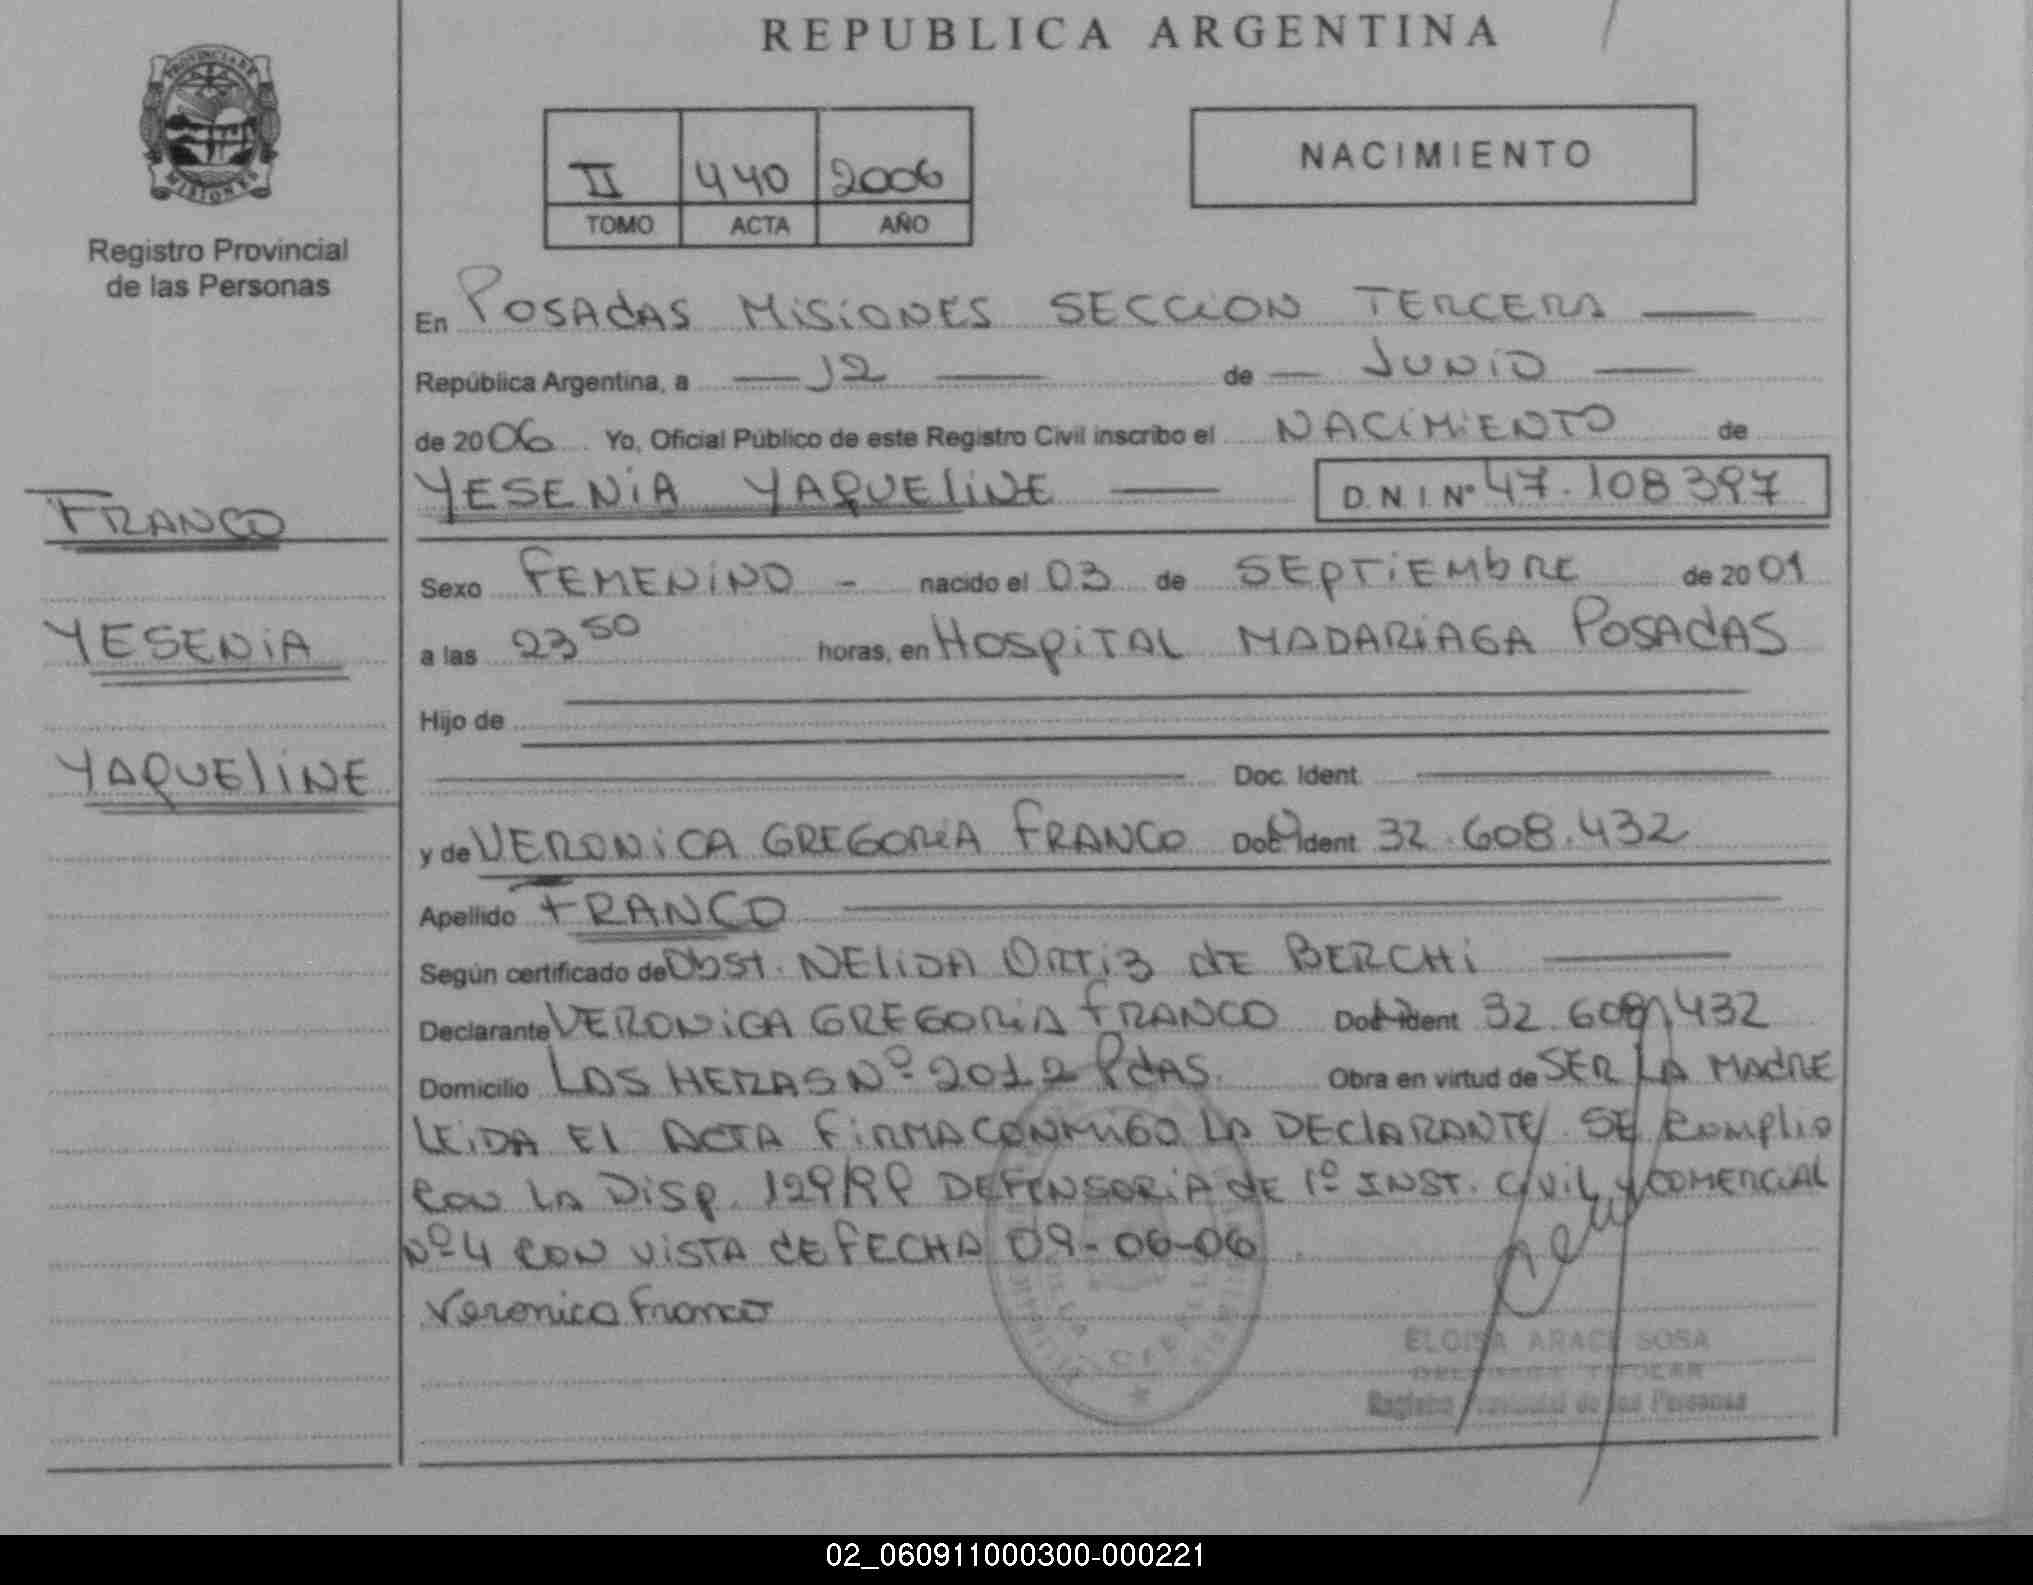 REPUBLICA ARGENTINA
PROVINCIA DE
MISIONES
Registro Provincial
de las Personas
II 440 2006
TOMO ACTA AÑO
NACIMIENTO
En POSADAS MISIONES SECCION TERCERA
República Argentina, a 12 de JUNIO
de 2006 Yo, Oficial Público de este Registro Civil inscribo el NACIMIENTO de
YESENIA YAQUELINE D.N.I.Nº 47.108397
FRANCO
YESENIA
YAQUELINE
Sexo FEMENINO - nacido el 03 de SEPTIEMBRE de 2001
a las 23 50 horas, en HOSPITAL MADARIAGA POSADAS
Hijo de
Doc. Ident.
y de VERONICA GREGORIA FRANCO Doc Ident 32.608.432
Apellido FRANCO
Según certificado de Obst. NELIDA ORTIZ de BERCHI
Declarante VERONICA GREGORIA FRANCO Doc Ident 32.608.432
Domicilio LAS HERAS Nº 2012 Pdas. Obra en virtud de SER LA MADRE
LEIDA El ACTA FIRMA CONMIGO LA DECLARANTE SE CUMPLIO
CON LA DISP. 129/99 DEFENSORIA de 1º INST. CIVIL y COMERCIAL
Nº 4 CON VISTA de FECHA 09-06-06
Veronica Franco
ELOISA ARACI SOSA
TITULAR
Registro Provincial de las Personas
02_060911000300-000221